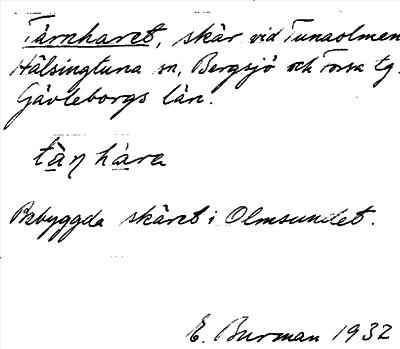 Tärnharet, skär vid Tunaolmen
Hälsingtuna sn, Bergsjö och Forsa tg.
Gävleborgs län.
tä̀n hàra
Bebyggda skäret i Olmsundet.
E. Burman 1932